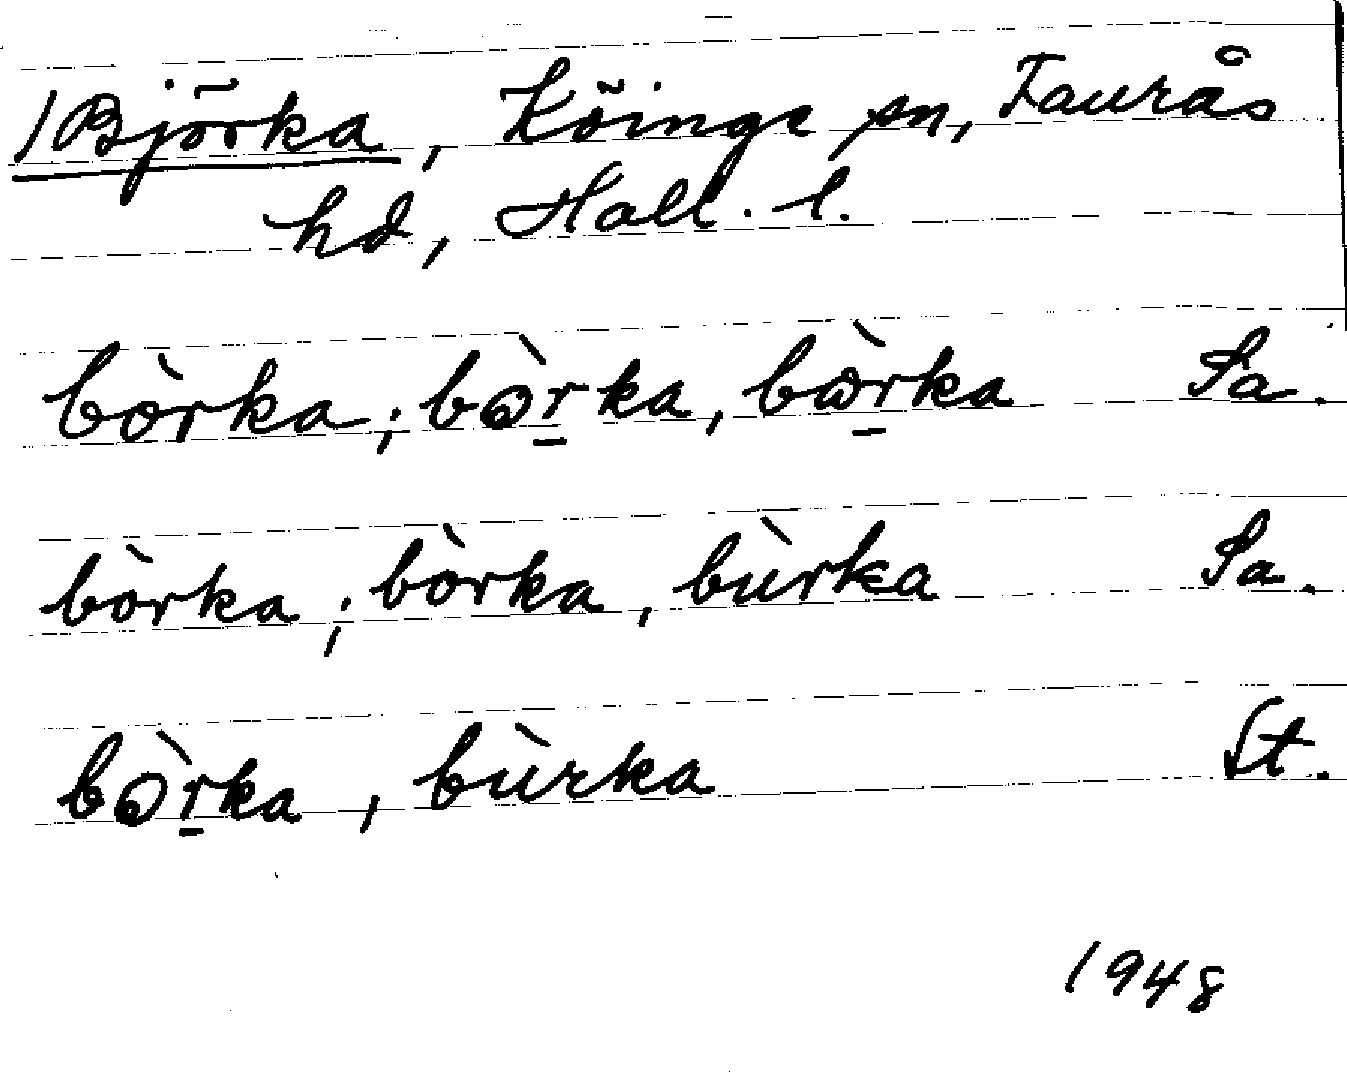 /Björka, Köinge sn, Faurås
hd, Hall. l.
bòrka; bòṟka, bɷ̀ṟka Sa.
bòrka; bòrka, bùrka Sa.
bòṟka, bùrka St.
1948